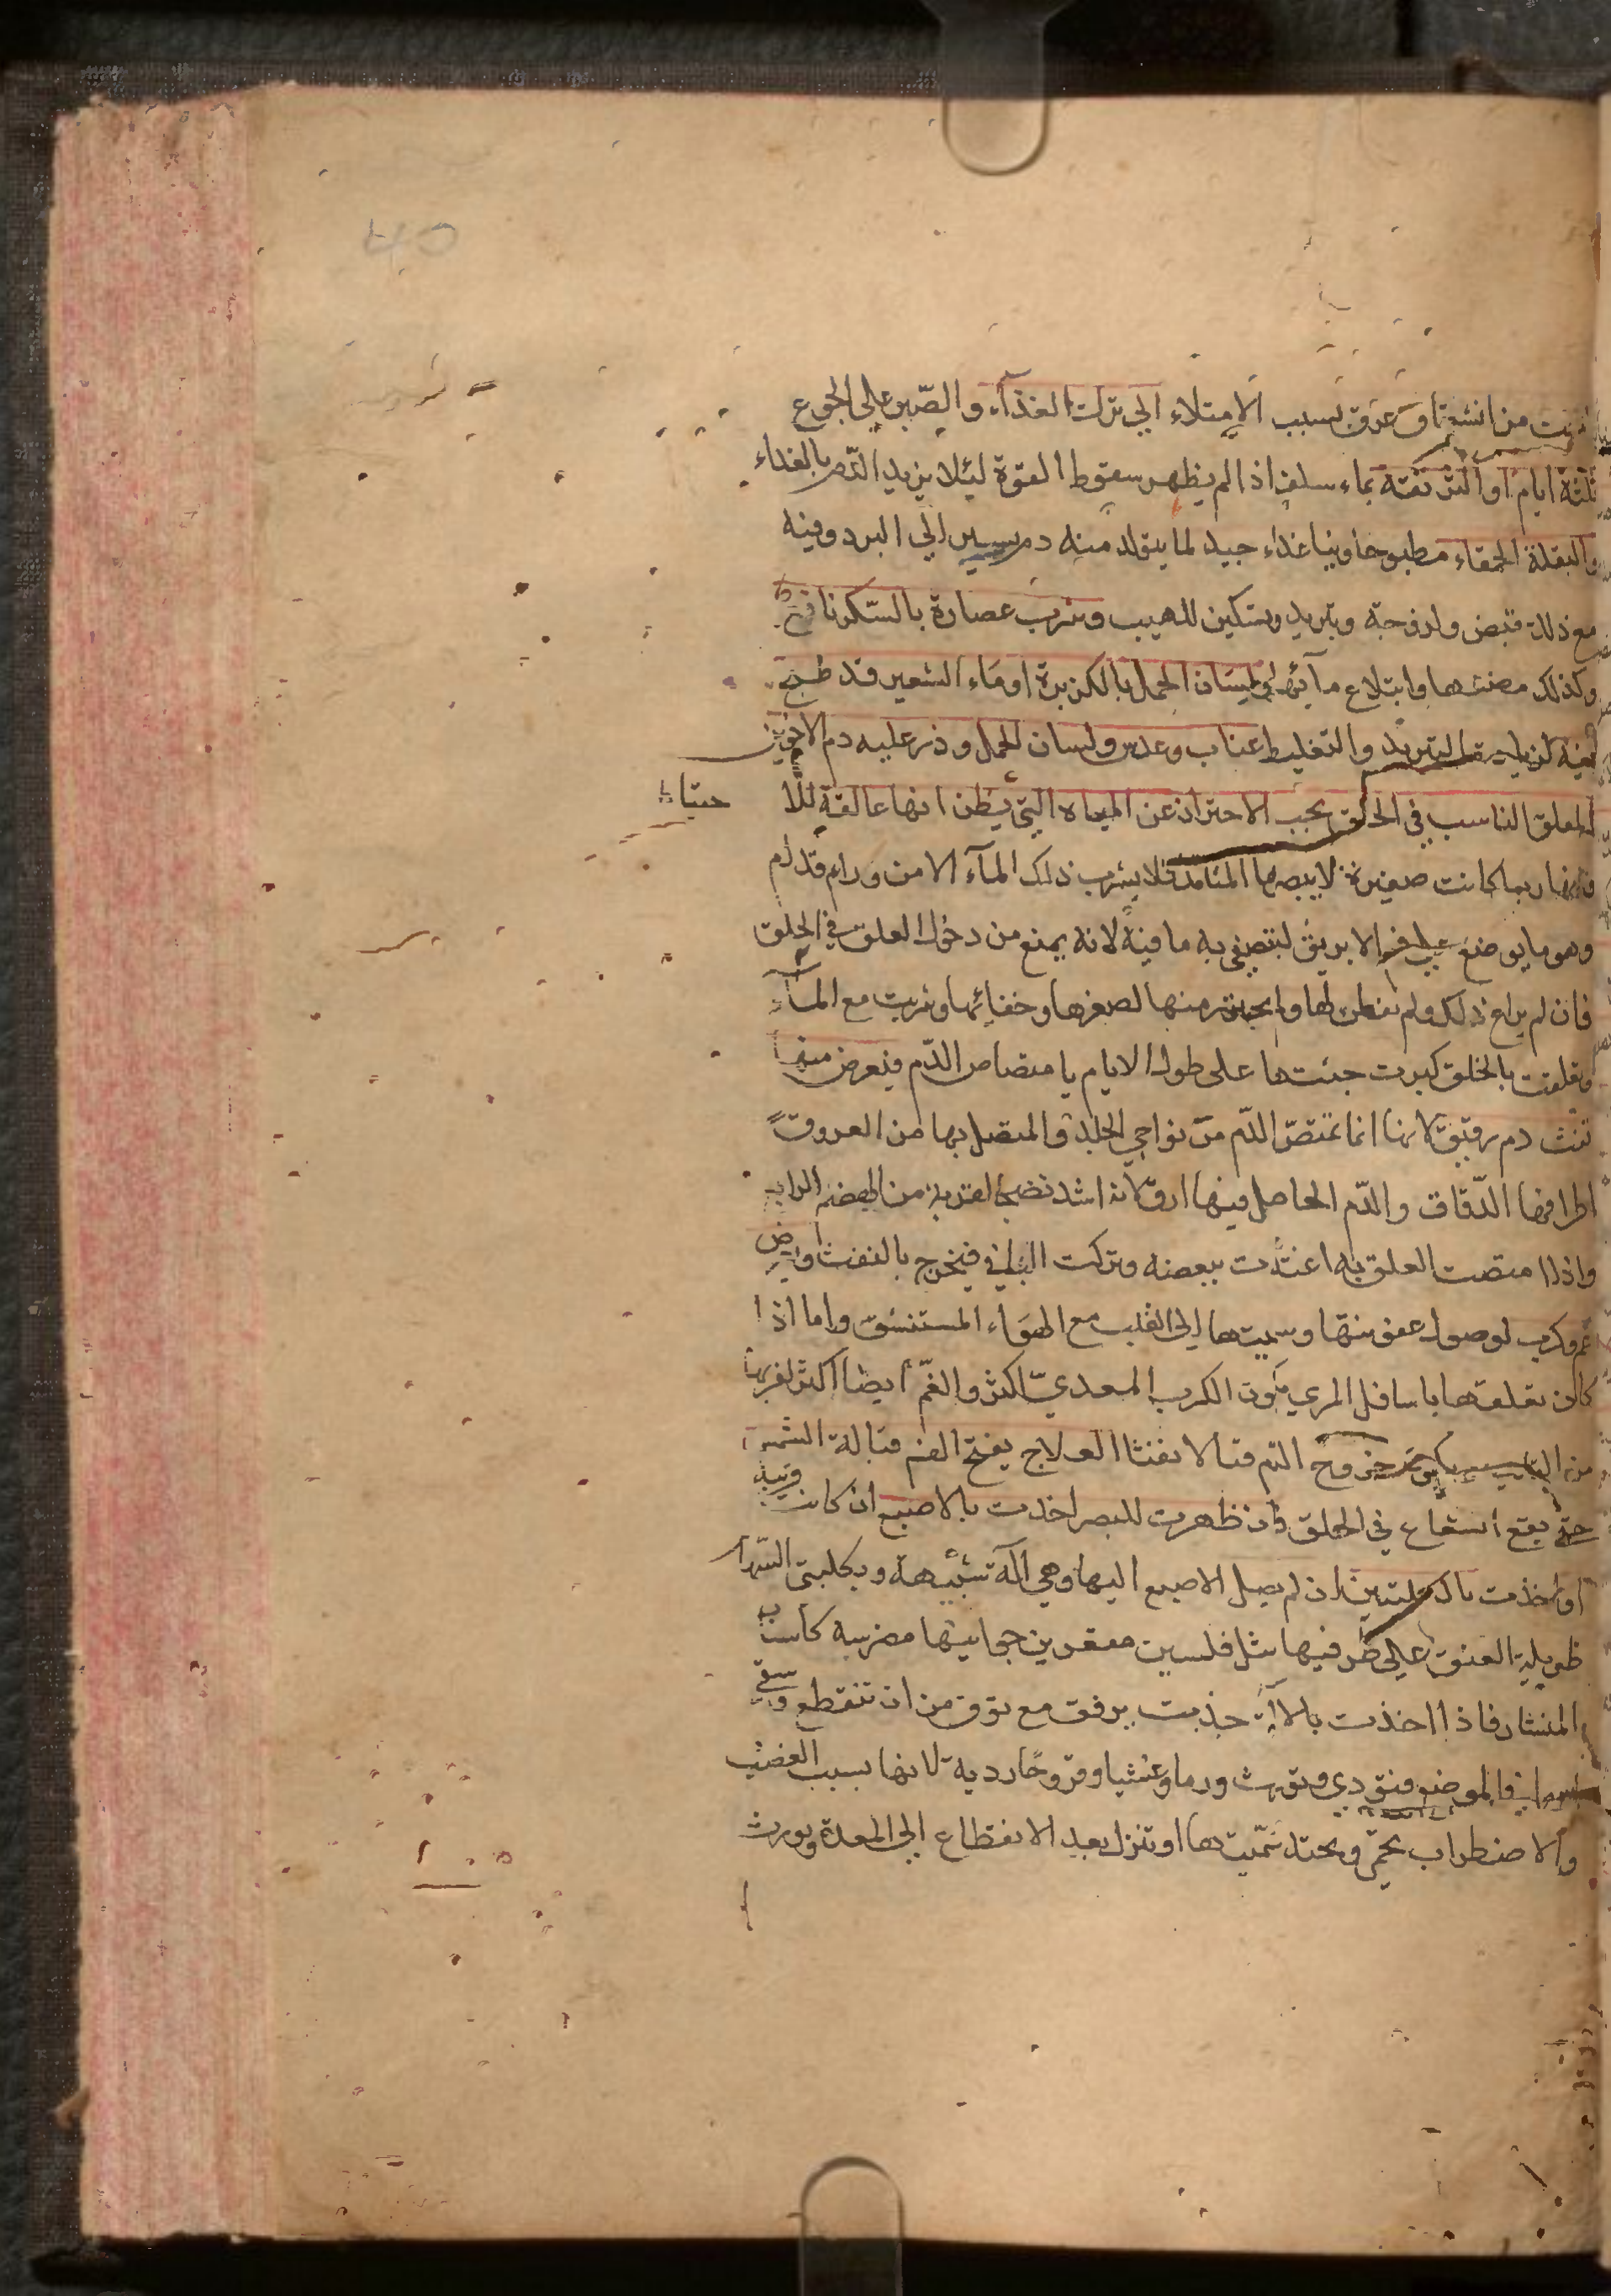 من انشقاق عرق بسبب الامتلاء الي ترك الغذآء والصّبر علي الجوع
ثلثة ايام او الترنفته بماء سلف اذا لم يظهر سقوط القوة ليئلا يزيد الدّم بالغداء
والبقلة الحمقاء مطبوخا ونيا غذاء جيد لما يتولد منه دم يسير الي البرد وفيه
مع ذلك قبض ولزوجة وتبريد وتسكين للهيب وشرب عصارة بالسّكر نافع
وكذلك مضغها وابتلاع مآئها ولسان الحمل بالكزبرة او مَاء الشعير قد طبخ
فيه لزيادة التبريد والتغليظ عناب وعدس ولسان الحمل وذر عليه دم الاخوين
العلق الناسب في الحلق يجب الاحتراز عن المياه التي يظن انها عالقة لئلا
فانها ربما كانت صغيرة لا يبصرها المتامل فلا يشرب ذلك المآء الا من ورام قدام
وهو ما يوضع علي فم الابريق ليتصفي به ما فيه لانه يمنع من دخول العلق في الحلق
فان لم يراع ذلك ولم تفطن لها ولم يحترز منها لصغرها وخفائها وشربت مع المآء
وتعلقت بالحلق كبرت جثتها على طول الايام بامتصاص الدّم فيعرض منها
نفث دم رقيق لانها انما تمتصّ الدّم من نواحي الجلد والمتصل بها من العروق
اطرافها الدّقاق والدّم الحاصل فيها ارق لانه اشد نضجا لقربه من الهضم الرابع
واذا امتصت العلق به اغتذت ببعضه وتركت الباقي فيخرج بالنفث ويعرض
غم وكرب لوصول عفونتها وسميتها الى القلب مع الهوَاء المستنشق واما اذا
كان تعلقها باسافل المري يكون الكرب المعديّ اكثر والغمّ ايضا اكثر لقربها
من القلب ويكون خروج الدّم قيا لا نفثا العلاج يفتح الفم قبالة الشمس
حتّي يقع الشعاع في الحلق فان ظهرت للبصر اخذت بالاصبع ان كانت قريبة
او اخذت بالكلبتين ان لم يصل الاصبع اليها وهي آلة شبيهة بكلبتي السّهام
طويلة العنق علي طرفيها مثل فلسين مقعرين جوانبها مضرسة كاسنان
المنشار فاذا اخذت بالآلة جذبت برفق مع توق من ان تنقطع ويبقي
راسها في الموضع فتؤدي وتورث ورما وغشيا وقروحًا ردية لانها بسبب الغضب
والاضطراب يحمّى ويحتد سَمّيتها او تنزل بعد الانقطاع الي المعدة ويورث